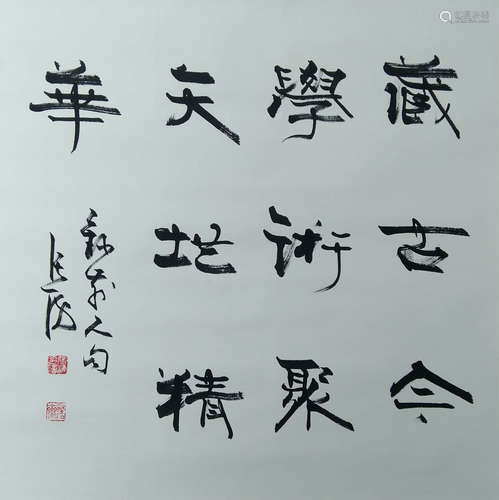 藏古今
學術聚
天地精
華
錄前人句